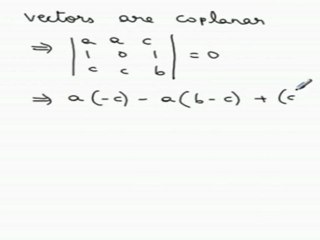 vectors are coplanar
⇒ | a a c |
| 1 0 1 | = 0
| c c b |
⇒ a(-c) - a(b-c) + (c